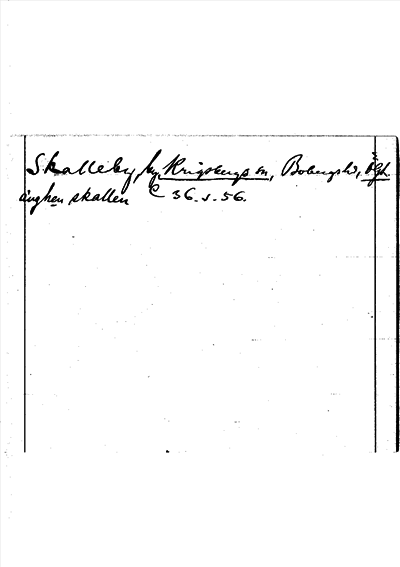 Skalleby, by, Krigsbergs sn, Bobergs hd, Ögtl.
ænghen skallen C 36. s. 56.